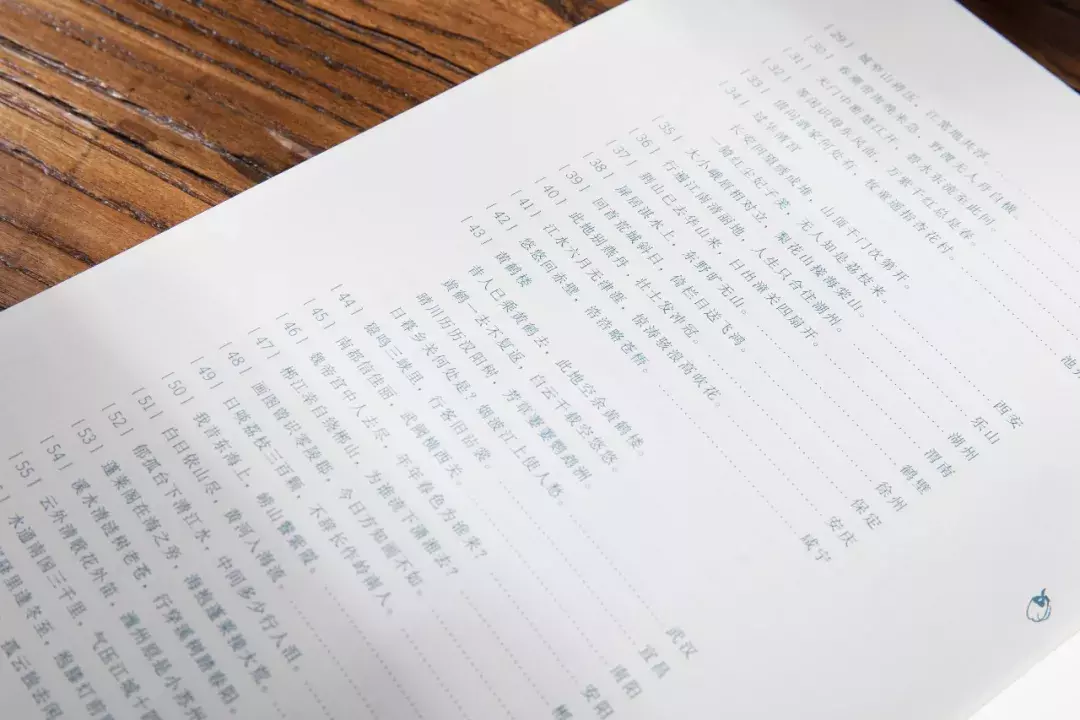 [29] 城窄山将压，江宽地共浮。
[30] 春潮带雨晚来急，野渡无人舟自横。
[31] 天门中断楚江开，碧水东流至此回。
[32] 等闲识得东风面，万紫千红总是春。
[33] 借问酒家何处有，牧童遥指杏花村。 池
[34] 过华清宫
长安回望绣成堆，山顶千门次第开。
一骑红尘妃子笑，无人知是荔枝来。 西安
[35] 大小峨眉相对立，梨花山接海棠山。 乐山
[36] 行遍江南清丽地，人生只合住湖州。 湖州
[37] 荆山已去华山来，日出潼关四扇开。 渭南
[38] 屏居淇水上，东野旷无山。 鹤壁
[39] 回首荒城斜日，倚栏目送飞鸿。 徐州
[40] 此地别燕丹，壮士发冲冠。 保定
[41] 江水六月无津涯，惊涛骇浪高吹花。 安庆
[42] 悠悠回赤壁，浩浩略苍梧。 咸宁
[43] 黄鹤楼
昔人已乘黄鹤去，此地空余黄鹤楼。
黄鹤一去不复返，白云千载空悠悠。
晴川历历汉阳树，芳草萋萋鹦鹉洲。
日暮乡关何处是？烟波江上使人愁。 武汉
[44] 猿鸣三峡里，行客旧沾裳。 宜昌
[45] 南都信佳丽，武阙横西关。 南阳
[46] 魏帝宫中人去尽，年年春色为谁来？ 安阳
[47] 郴江幸自绕郴山，为谁流下潇湘去？ 郴
[48] 画图曾识零陵郡，今日方知画不如。
[49] 日啖荔枝三百颗，不辞长作岭南人。
[50] 我昔东海上，崂山餐紫霞。
[51] 白日依山尽，黄河入海流。
[52] 郁孤台下清江水，中间多少行人泪。
[53] 蓬莱阁在海之旁，海蓬莱接大荒。
[54] 溪水清涟树老苍，行穿溪树踏春阳。
[55] 云外清歌花外笛，潍州原是小苏州
水通南国三千里，气压江城十四
驿里逢冬至，抱膝灯前
孤云独去闲